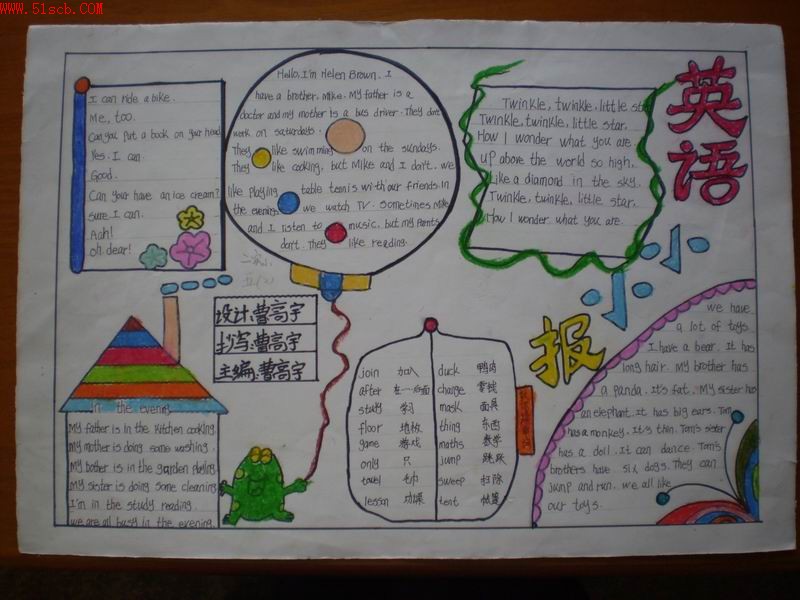 www.51scb.com
I can ride a bike.
Me, too.
Can you put a book on your head
Yes. I can.
Good.
Can your have an ice cream?
Sure. I can.
Aah!
Oh, dear!
Hello, I'm Helen Brown. I
have a brother, Mike. My father is a
doctor and my mother is a bus driver. They don't
work on saturdays.
They like swimming on the sundays.
They like cooking, but Mike and I don't. we
like playing table tenis with our friends. In
the evenings we watch TV. Sometimes Mike
and I listen to music, but my
don't. They like reading.
Twinkle, twinkle, little star
Twinkle, twinkle, little star,
How I wonder what you are.
up above the world so high,
Like a diamond in the sky.
Twinkle, twinkle, little star,
How I wonder what you are.
英语
小小
报
设计:曹高宇
抄写:曹高宇
主编:曹高宇
In the evening
My father is in the kitchen cooking
My mother is doing some washing.
My bother is in the garden playing
My sister is doing some cleaning
I'm in the study reading.
we are all busy in the evening.
join 加入
after 在…后面
study 学习
floor 地板
game 游戏
only 只
towel 毛巾
lesson 功课
duck 鸭肉
change 零钱
mask 面具
thing 东西
maths 数学
jump 跳跃
sweep 扫除
tent 帐篷
we have
a lot of toys.
I have a bear. It has
long hair. My brother has
a panda. It's fat. My sister has
an elephant. It has big ears. Tom
has a monkey. It's thin. Tom's sister
has a doll. It can dance. Tom's
brothers have six dogs. They can
jump and run. we all like
our toys.